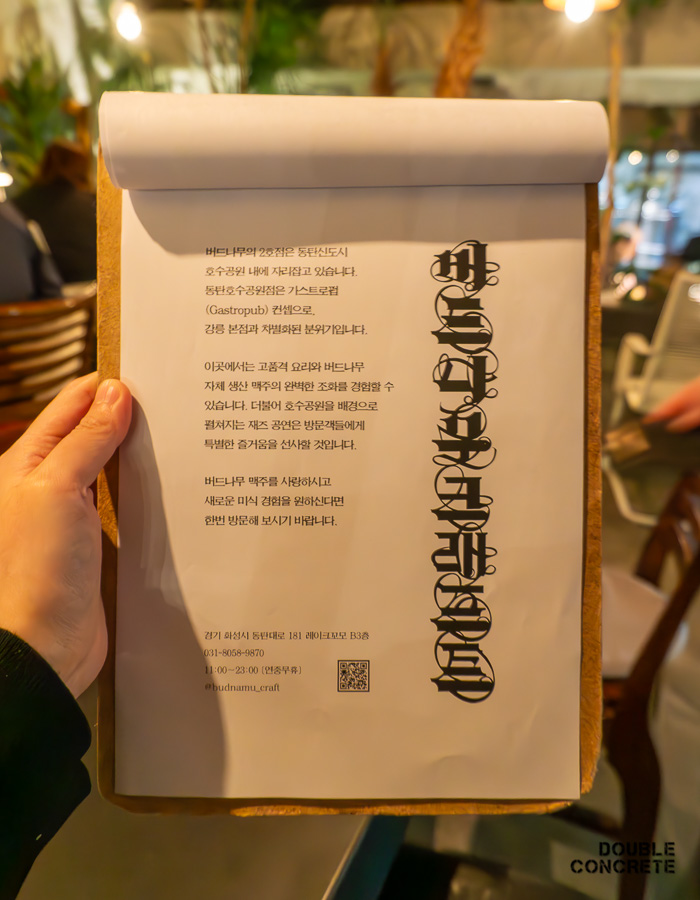 버드나무의 2호점은 동탄신도시
호수공원 내에 자리잡고 있습니다.
동탄호수공원점은 가스트로펍
(Gastropub) 컨셉으로,
강릉 본점과 차별화된 분위기입니다.
이곳에서는 고품격 요리와 버드나무
자체 생산 맥주의 완벽한 조화를 경험할 수
있습니다. 더불어 호수공원을 배경으로
펼쳐지는 재즈 공연은 방문객들에게
특별한 즐거움을 선사할 것입니다.
버드나무 맥주를 사랑하시고
새로운 미식 경험을 원하신다면
한번 방문해 보시기 바랍니다.
경기 화성시 동탄대로 181 레이크꼬모 B3층
031-8058-9870
11:00-23:00 (연중무휴)
@budnamu_craft
DOUBLE
CONCRETE